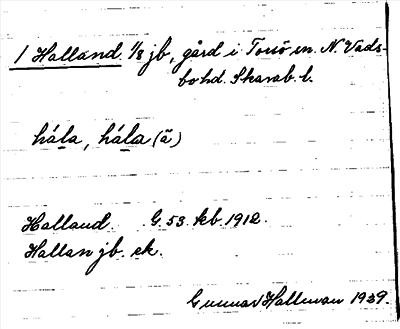 1 Halland. 1/8 jb, gård i Torsö sn. N. Vads-
bo hd. Skarab. l.
håla, håla (ä)
Halland. G. 53. kb 1912.
Hallan jb. ek.
Gunnar Hallman 1939.